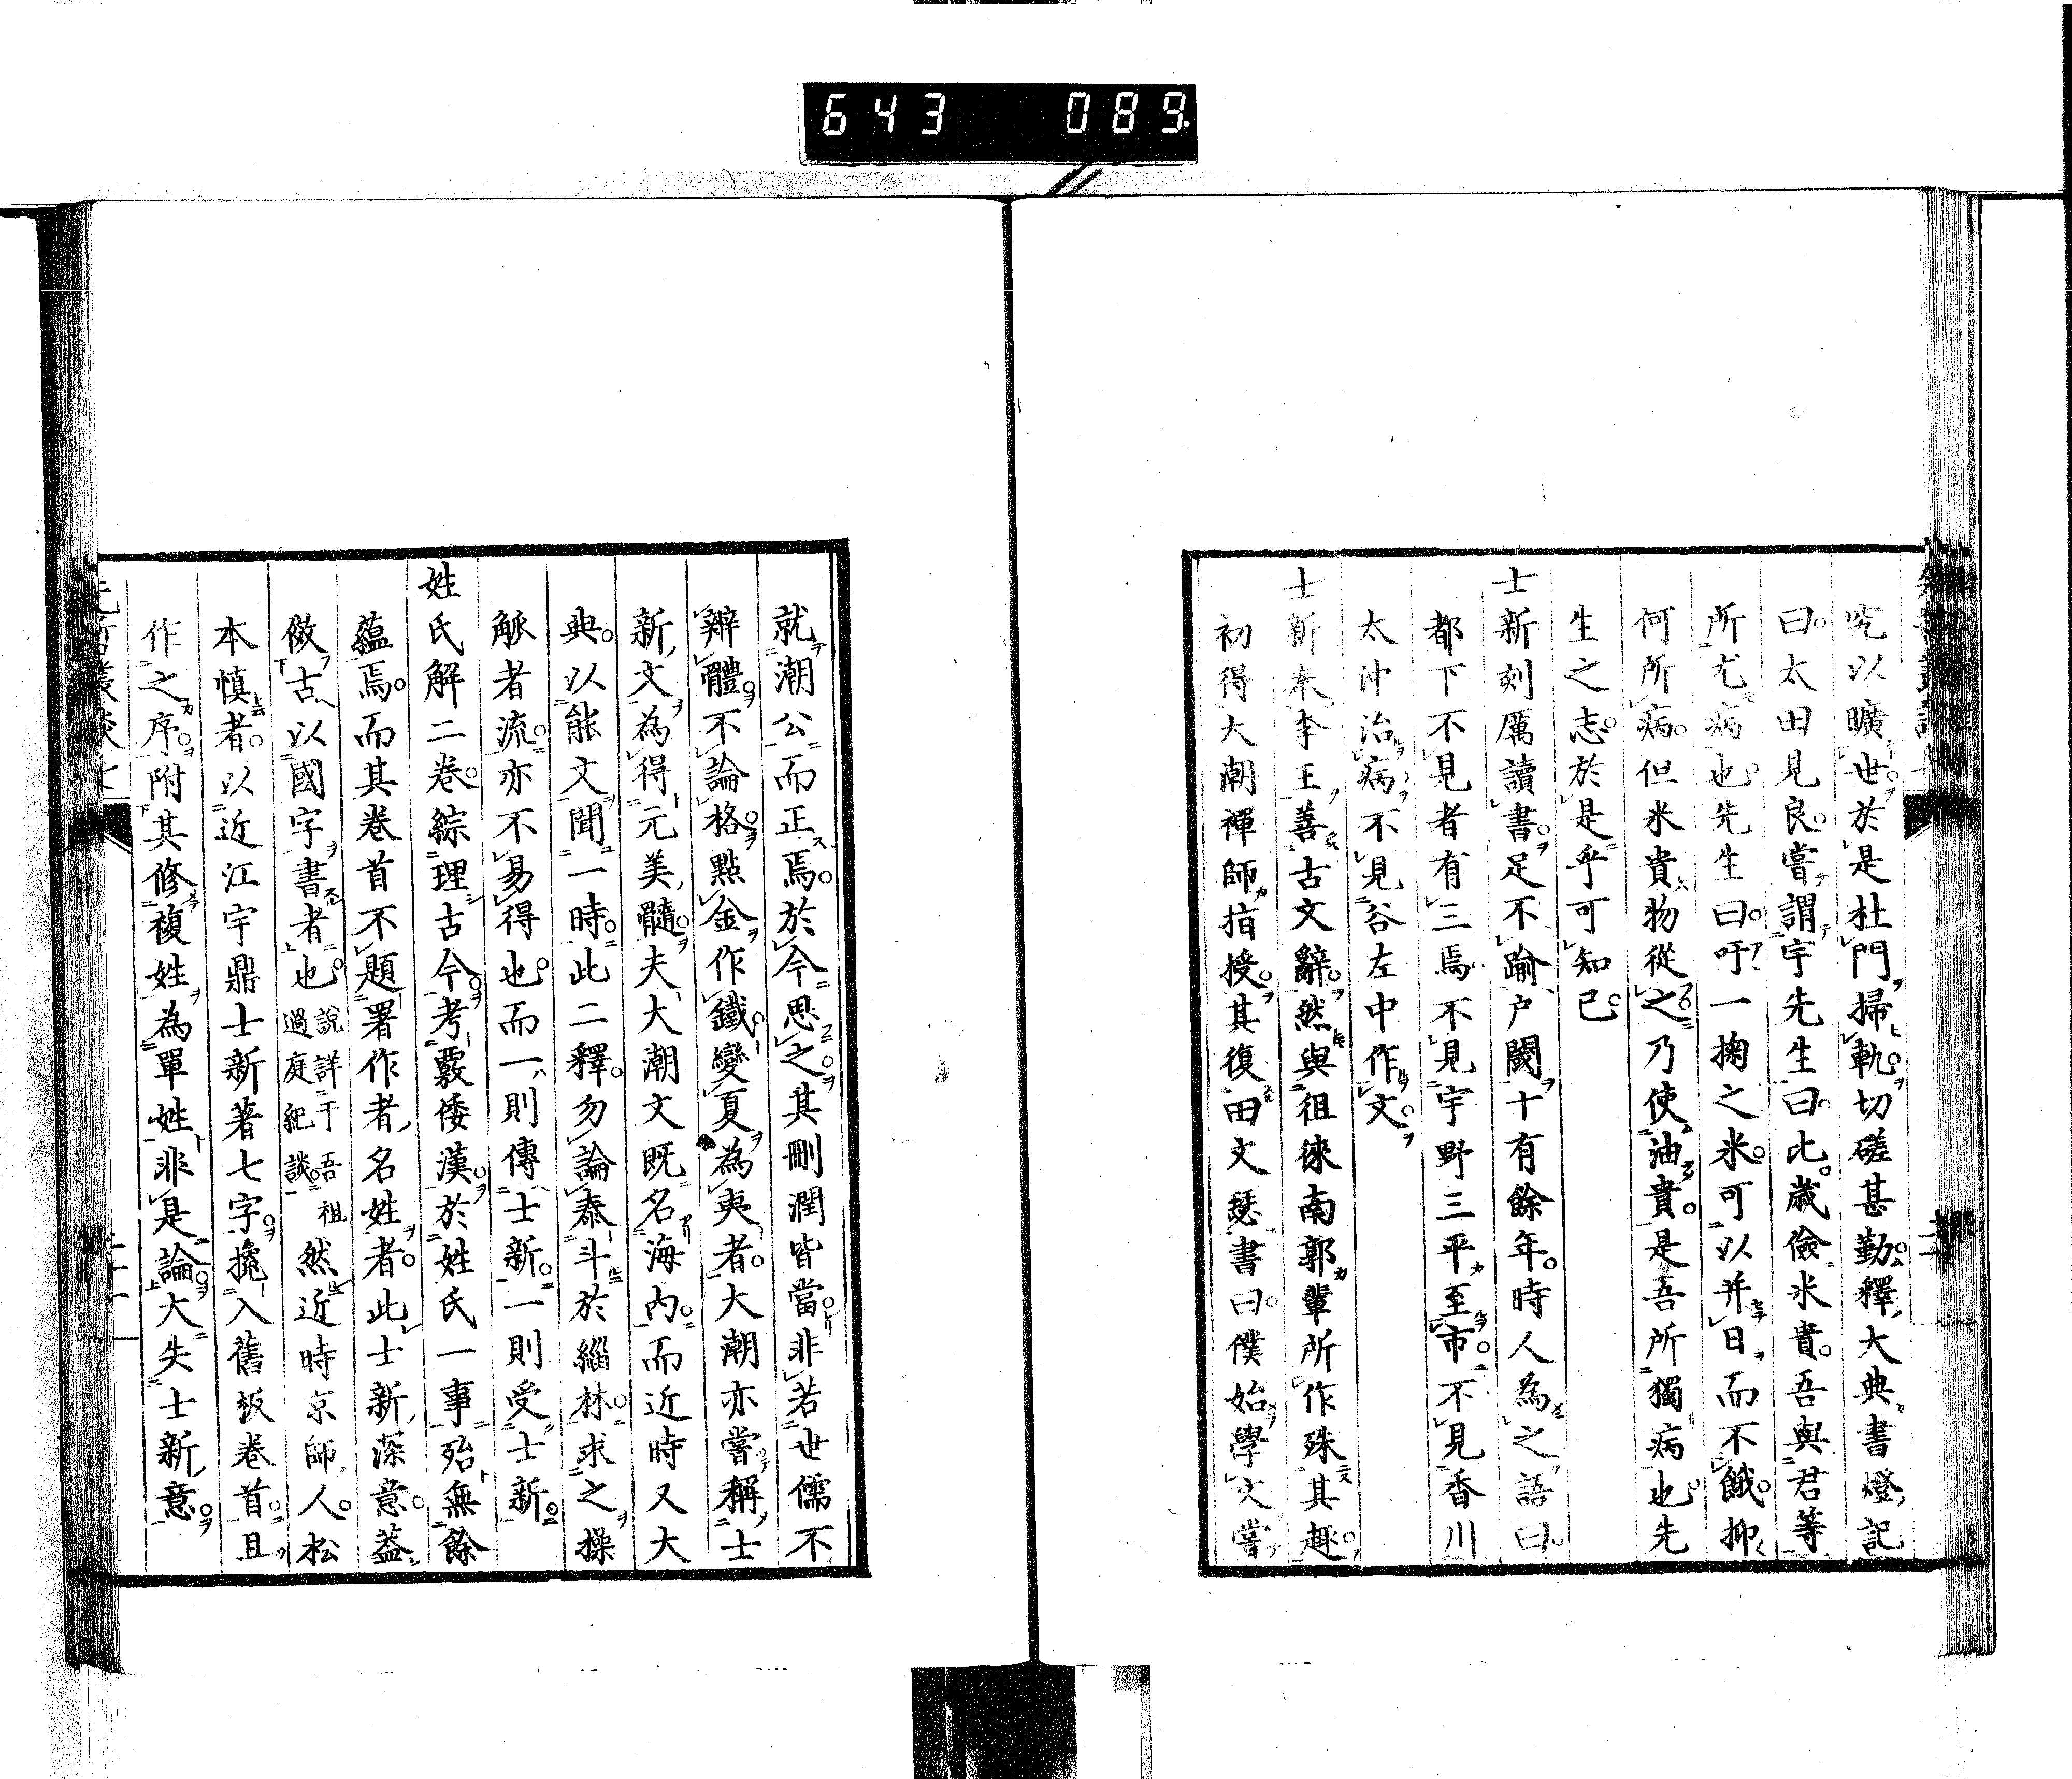 643 089
究以曠世於是杜門掃軌切磋甚勤釋大典書燈記
曰太田見良嘗謂宇先生曰比歲儉米貴吾與君等
所尤病也先生曰吁一掬之米可以并日而不餓抑
何所病但米貴物從之乃使油貴是吾所獨病也先
生之志於是乎可知已
士新刻厲讀書足不踰户閾十有餘年時人為之語曰
都下不見者有三焉不見宇野三平至市不見香川
太沖治病不見谷左中作文
士新末李王善古文辭然與徂徠南郭輩所作殊其趣
初得大潮禪師指授其復田文瑟書曰僕始學文嘗
就潮公而正焉於今思之其刪潤皆當非若世儒不
辨體不論格點金作鐵變夏為夷者大潮亦嘗稱士
新文為得元美髓夫大潮文既名海內而近時又大
典以能文聞一時此二釋勿論泰斗於緇林求之操
觚者流亦不易得也而一則傳士新一則受士新
姓氏解二卷綜理古今考覈倭漢於姓氏一事殆無餘
蘊焉而其卷首不題署作者名姓者此士新深意蓋
倣古以國字書者也說詳于吾祖過庭紀談然近時京師人松
本慎者以近江宇鼎士新著七字攙入舊板卷首且
作之序附其修複姓為單姓非是論大失士新意